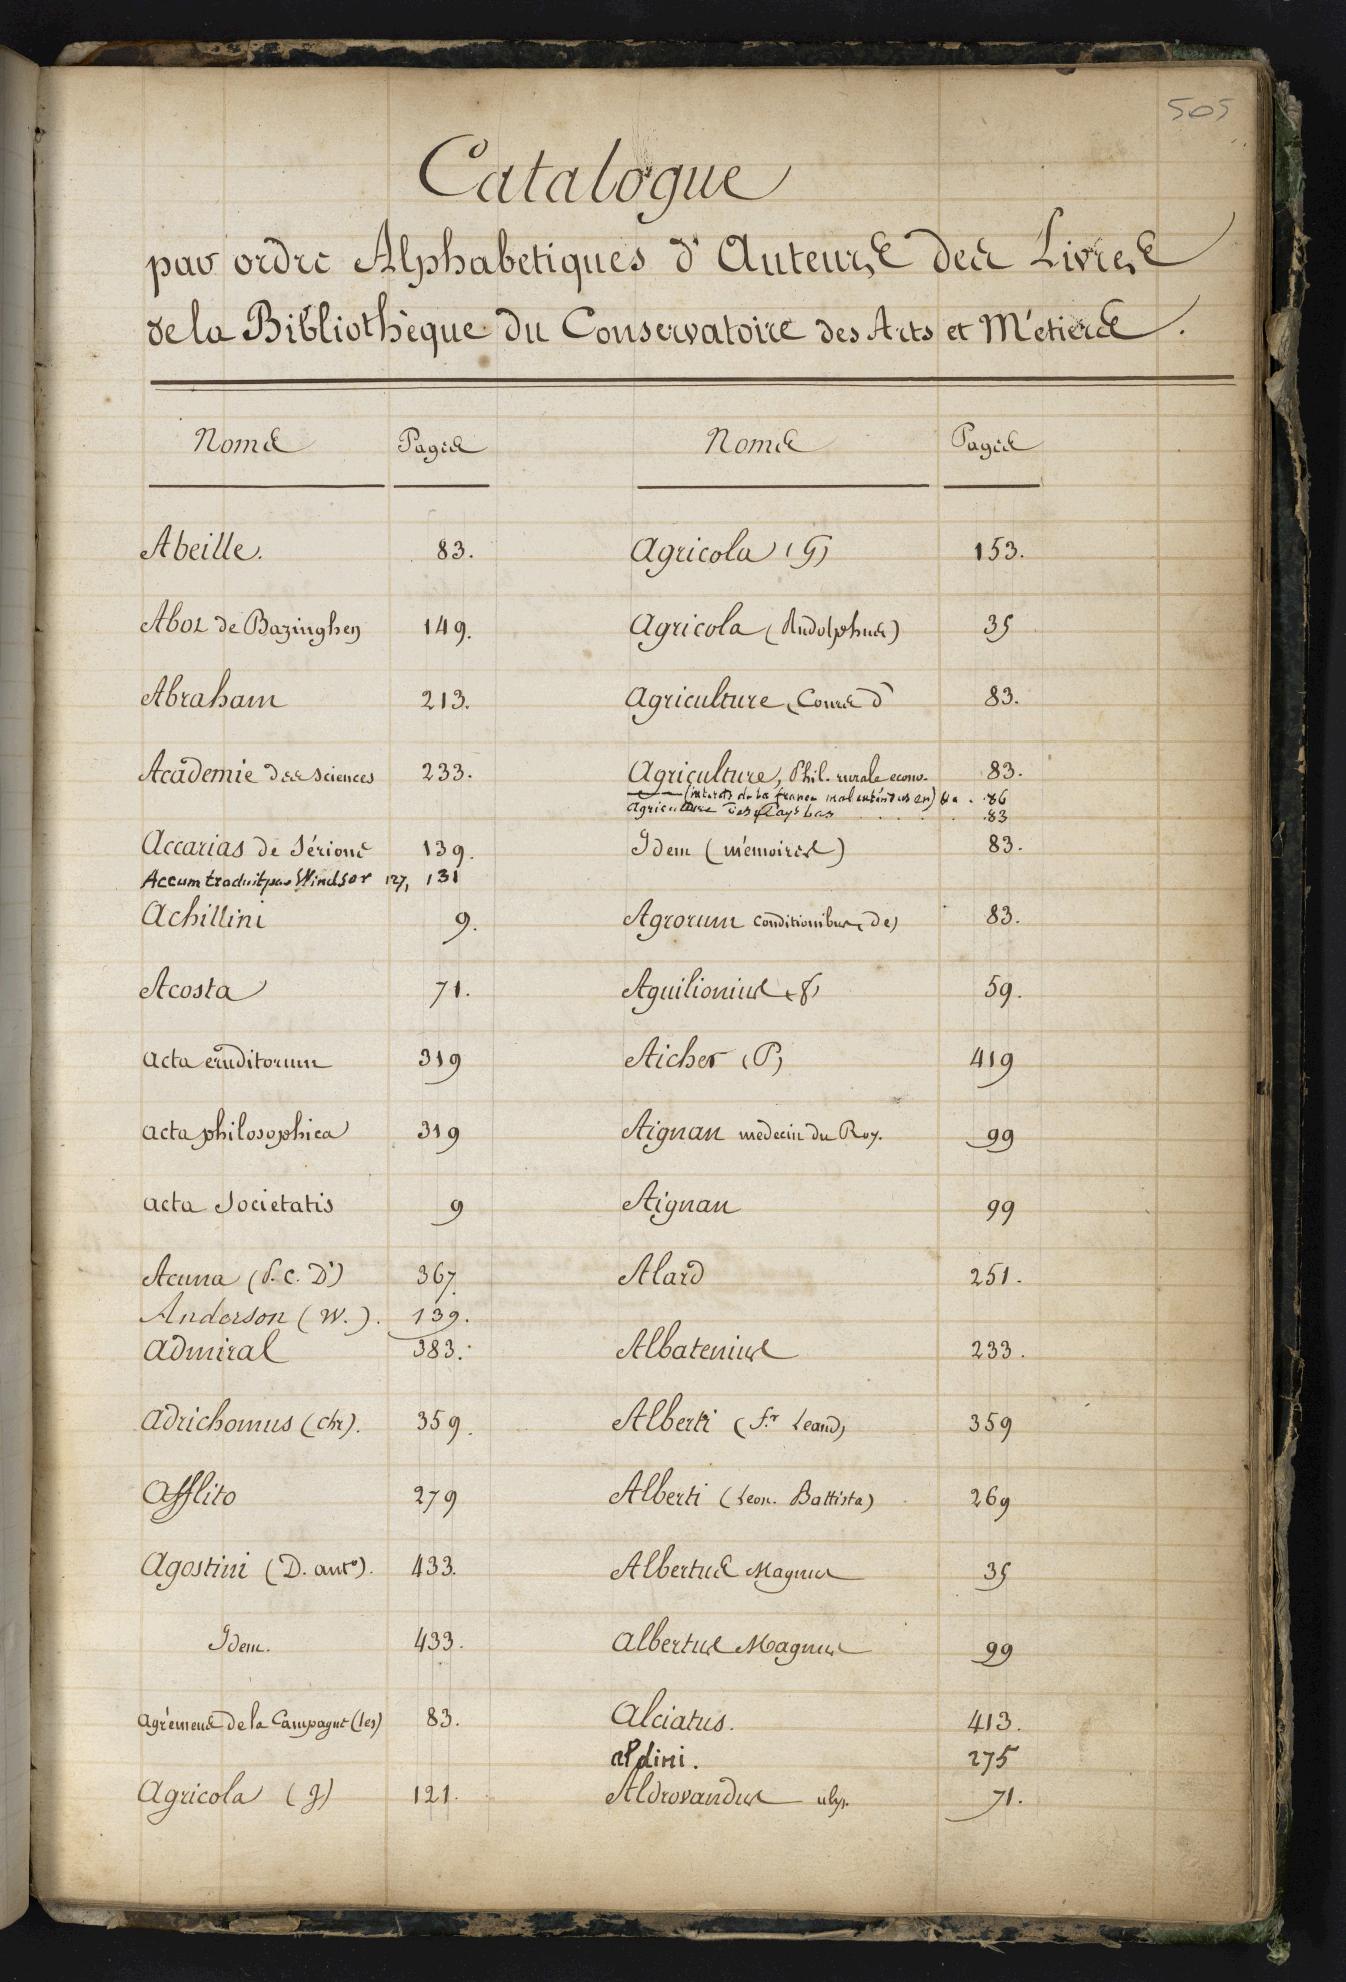 505
Catalogue
par ordre Alphabetiques d'Auteurs des Livres
de la Bibliothèque du Conservatoire des Arts et Métiers.
Noms Pages Noms Pages
Abeille. 83. Agricola (G) 153.
Abot de Bazinghen 149. Agricola (Rudolphus) 35
Abraham 213. Agriculture (Cours d' 83.
Académie des Sciences 233. Agriculture, Phil. rurale econo. 83.
(interets de la france mal entendus en) 86
Agriculture des Pays bas 83
Accarias de Sérionè 139. Idem (mémoires) 83.
Accum traduit par Windsor 127, 131
Achillini 9. Agrorum conditionibus, de) 83.
Acosta 71. Aguilionius (f) 59.
acta eruditorum 319 Aicher (P) 419
acta philosophica 319 Aignan medecin du Roy. 99
acta Societatis 9 Aignan 99
Acuna (P. C. D') 367. Alard 251.
Anderson (W.). 139.
Admiral 383. Albatenius 233.
Adrichomus (chr). 359. Alberti (f.r Leand) 359
Afflito 279 Alberti (Leon. Battista) 269
Agostini (D. anto). 433. Albertus Magnus 35
Idem. 433. Albertus Magnus 99
Agrémens de la Campagne (les) 83. Alciatus. 413.
aldini. 275
Agricola (g) 121. Aldrovandus ulys. 71.